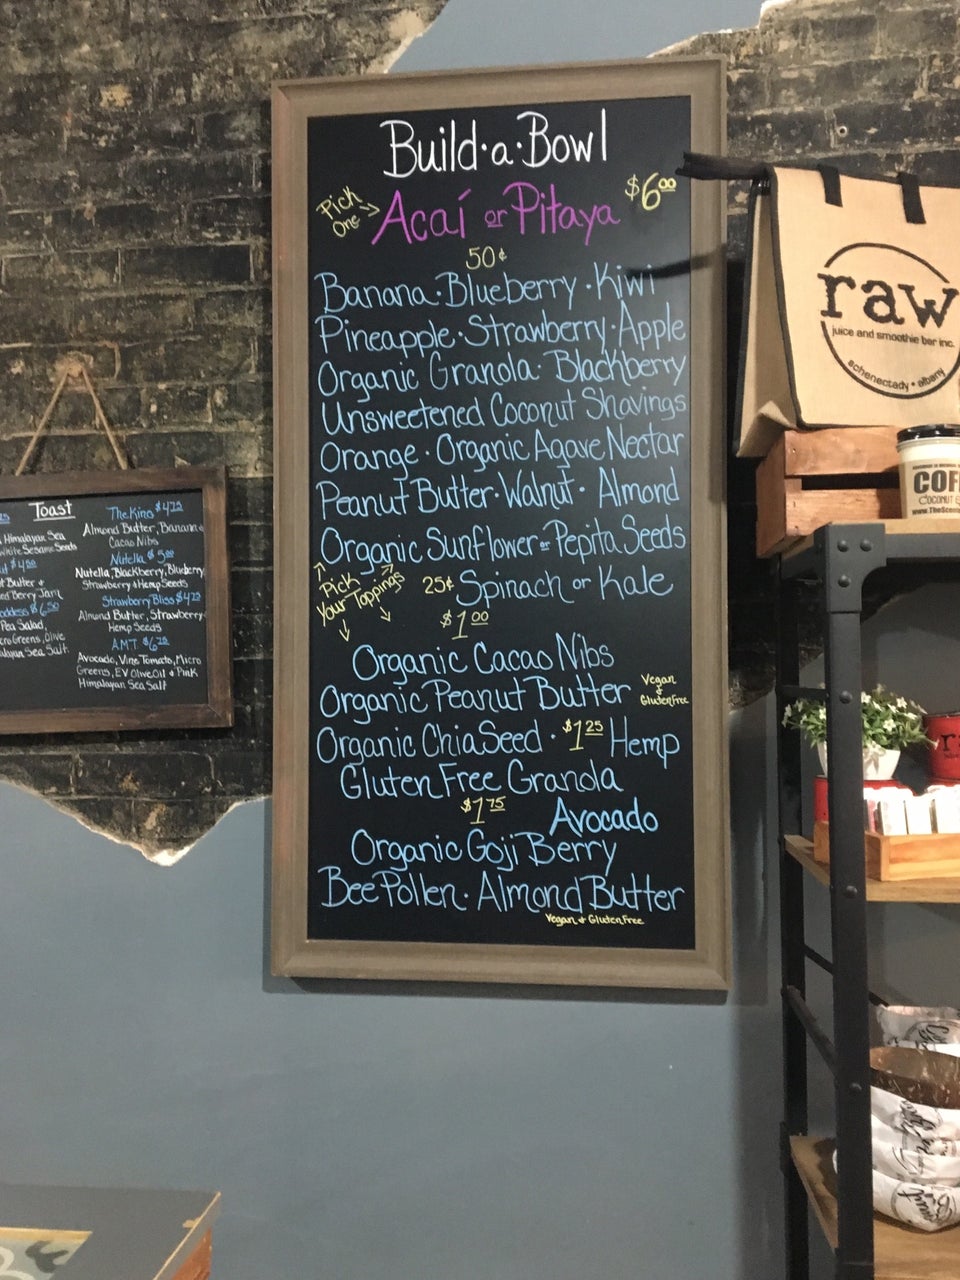 Build·a·Bowl
Pick
One
Acaí or Pitaya
$6.00
50¢
Banana·Blueberry·Kiwi
Pineapple·Strawberry·Apple
Organic Granola·Blackberry
Unsweetened Coconut Shavings
Orange·Organic Agave Nectar
Peanut Butter·Walnut·Almond
Organic Sunflower or Pepita Seeds
Pick
Your Toppings
25¢ Spinach or Kale
$1.00
Organic Cacao Nibs
Organic Peanut Butter
Vegan
&
Gluten Free
Organic Chia Seed·$1.25 Hemp
Gluten Free Granola
$1.75
Avocado
Organic Goji Berry
Bee Pollen·Almond Butter
Vegan & Gluten Free
Toast
Himalayan Sea
White Sesame Seeds
Butter &
Jam
$6.50
Pea Salad,
Greens, Olive
Sea Salt
The King $4.75
Almond Butter, Banana
Cacao Nibs
Nutella $5.00
Nutella, Blackberry, Blueberry
Strawberry & Hemp Seeds
Strawberry Bliss $4.75
Almond Butter, Strawberry
Hemp Seeds
AMT $6.75
Avocado, Vine Tomato, Micro
Greens, EV Olive Oil & Pink
Himalayan Sea Salt
raw
juice and smoothie bar inc.
schenectady • albany
COFF
COCONUT